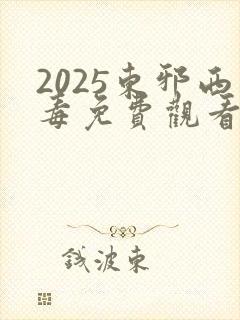 2025東邪西
毒免費觀看
錢波東